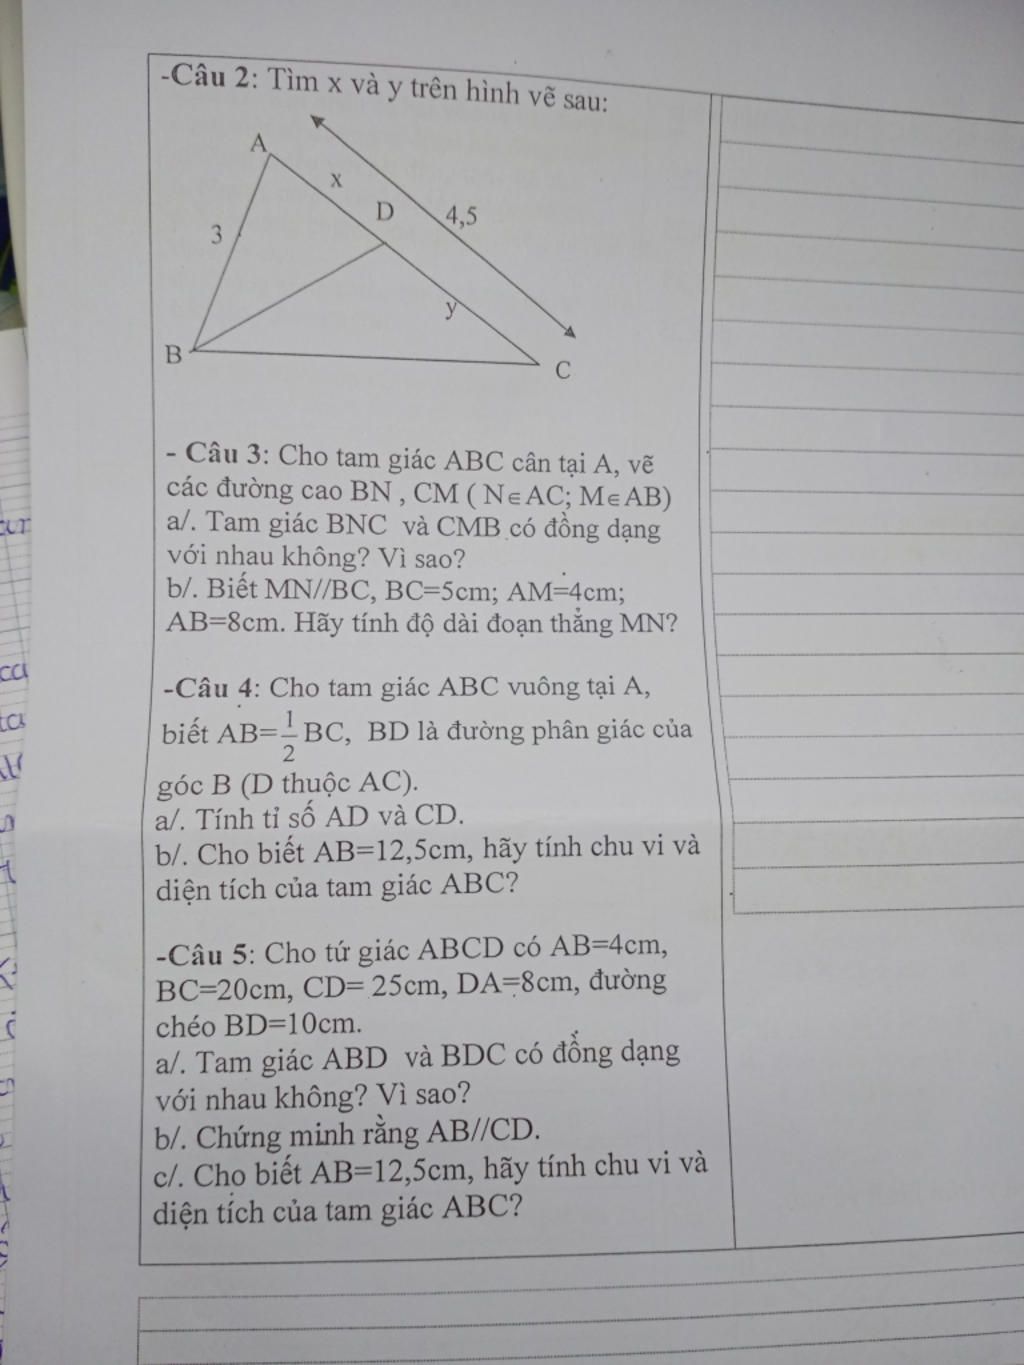 -Câu 2: Tìm x và y trên hình vẽ sau:
A
x
D
4,5
3
y
B
C
- Câu 3: Cho tam giác ABC cân tại A, vẽ
các đường cao BN , CM ( N∈AC; M∈AB)
a/. Tam giác BNC và CMB có đồng dạng
với nhau không? Vì sao?
b/. Biết MN//BC, BC=5cm; AM=4cm;
AB=8cm. Hãy tính độ dài đoạn thẳng MN?
-Câu 4: Cho tam giác ABC vuông tại A,
biết AB=1/2 BC, BD là đường phân giác của
góc B (D thuộc AC).
a/. Tính tỉ số AD và CD.
b/. Cho biết AB=12,5cm, hãy tính chu vi và
diện tích của tam giác ABC?
-Câu 5: Cho tứ giác ABCD có AB=4cm,
BC=20cm, CD= 25cm, DA=8cm, đường
chéo BD=10cm.
a/. Tam giác ABD và BDC có đồng dạng
với nhau không? Vì sao?
b/. Chứng minh rằng AB//CD.
c/. Cho biết AB=12,5cm, hãy tính chu vi và
diện tích của tam giác ABC?